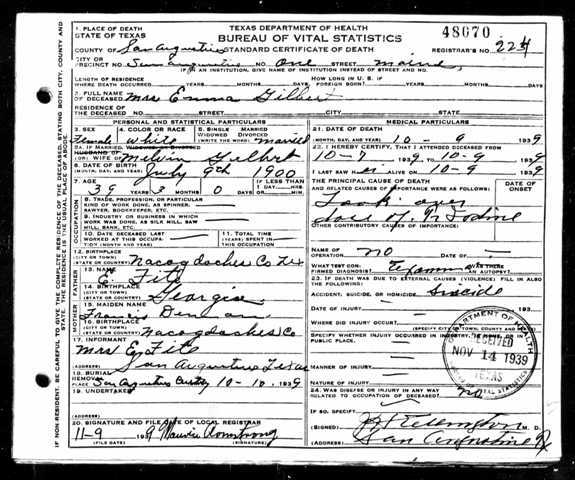 TEXAS DEPARTMENT OF HEALTH
BUREAU OF VITAL STATISTICS
STANDARD CERTIFICATE OF DEATH
48670
REGISTRAR'S NO. 224
1. PLACE OF DEATH
STATE OF TEXAS
COUNTY OF San Augustine
CITY OR
PRECINCT NO. San Augustine No. one STREET
IF IN AN INSTITUTION, GIVE NAME OF INSTITUTION INSTEAD OF STREET AND NO.
LENGTH OF RESIDENCE
WHERE DEATH OCCURRED YEARS MONTHS DAYS
HOW LONG IN U. S. IF
FOREIGN BORN? YEARS MONTHS DAYS
2. FULL NAME
OF DECEASED Mrs Emma Gilbert
RESIDENCE OF
THE DECEASED NO. STREET CITY STATE
PERSONAL AND STATISTICAL PARTICULARS
3. SEX
Female
4. COLOR OR RACE
white
5. SINGLE MARRIED
WIDOWED DIVORCED
(WRITE THE WORD) married
5A. IF MARRIED, WIDOWED OR DIVORCED
HUSBAND OF
(OR) WIFE OF Melvin Gilbert
6. DATE OF BIRTH
July 9th 1900
7. AGE
39 YEARS 3 MONTHS 0 DAYS
IF LESS THAN
1 DAY
HOURS MIN
OCCUPATION
8. TRADE, PROFESSION, OR PARTICULAR
KIND OF WORK DONE, AS SPINNER,
SAWYER, BOOKEEPER, ETC.
9. INDUSTRY OR BUSINESS IN WHICH
WORK WAS DONE, AS SILK MILL, SAW
MILL, BANK, ETC.
10. DATE DECEASED LAST WORKED AT
THIS OCCUPATION
(MONTH AND YEAR)
11. TOTAL TIME
(YEARS) SPENT IN
THIS OCCUPATION
12. BIRTHPLACE
(CITY OR TOWN)
(STATE OR COUNTRY) Nacogdoches Co Tex
FATHER
13. NAME
E. Fite
14. BIRTHPLACE
(CITY OR TOWN)
(STATE OR COUNTRY) Georgia
MOTHER
15. MAIDEN NAME
Francis
16. BIRTHPLACE
(CITY OR TOWN)
(STATE OR COUNTRY) Nacogdoches Co
17. INFORMANT
Mrs E. Fite
(ADDRESS) San Augustine Texas
18. BURIAL
REMOVAL
PLACE San Augustine 10-10. 1939
19. UNDERTAKER
(ADDRESS)
20. SIGNATURE AND FILE DATE OF LOCAL REGISTRAR
11-9 1939 Maurice Armstrong
(FILE DATE) (SIGNATURE)
MEDICAL PARTICULARS
21. DATE OF DEATH
10 - 9 1939
22. I HEREBY CERTIFY, THAT I ATTENDED THE DECEASED FROM
10-7 1939 TO 10-9 1939
I LAST SAW ALIVE ON 10-9 1939
THE PRINCIPAL CAUSE OF DEATH AND
RELATED CAUSES OF IMPORTANCE WERE AS FOLLOWS:
DATE OF
ONSET
Took over
dose of
OTHER CONTRIBUTORY CAUSES OF IMPORTANCE:
NAME OF
OPERATION no DATE OF
WHAT TEST CON-
FIRMED DIAGNOSIS?
WAS THERE
AN AUTOPSY?
23. IF DEATH WAS DUE TO EXTERNAL CAUSES (VIOLENCE) FILL IN ALSO
THE FOLLOWING:
ACCIDENT, SUICIDE, OR HOMICIDE Suicide
DATE OF
INJURY 193
WHERE DID INJURY OCCUR?
(SPECIFY CITY, TOWN, COUNTY AND STATE)
SPECIFY WHETHER INJURY OCCURRED IN INDUSTRY, IN HOME, OR IN
PUBLIC PLACE.
MANNER OF
INJURY
NATURE OF INJURY
24. WAS DISEASE OR INJURY IN ANY WAY
RELATED TO OCCUPATION OF DECEASED? no
IF SO,
SPECIFY
(SIGNED) M. D.
(ADDRESS) San Augustine Tx
DEPARTMENT OF HEALTH
RECEIVED
NOV 14 1939
TEXAS
BUREAU OF VITAL STATISTICS